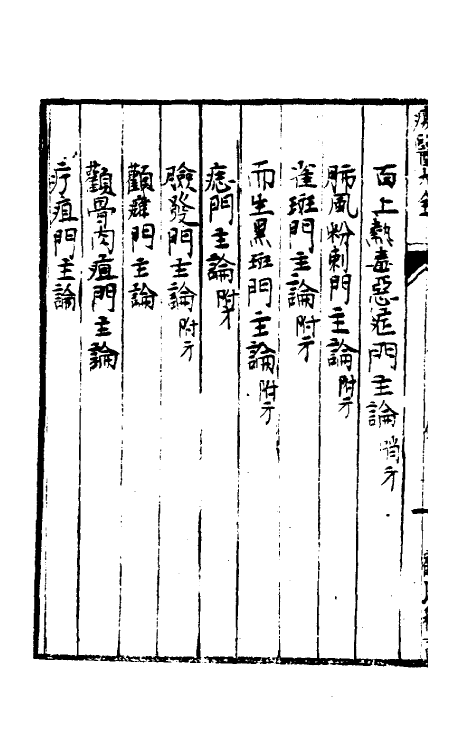 面上熱毒惡症門主論附方
肺風粉刺門主論附方
雀斑門主論附方
面生黑斑門主論附方
痣門主論附方
臉發門主論附方
顴疿門主論
顴骨肉疽門主論
疔疽門主論